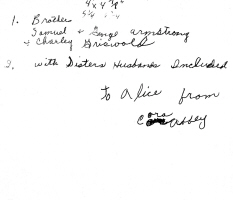 4 x 4 3/8"
1. Brothers
Samuel + George Armstrong
+ Charley Griswold
2. with Sisters Husbands Included
To Alice from
Cora Abbey